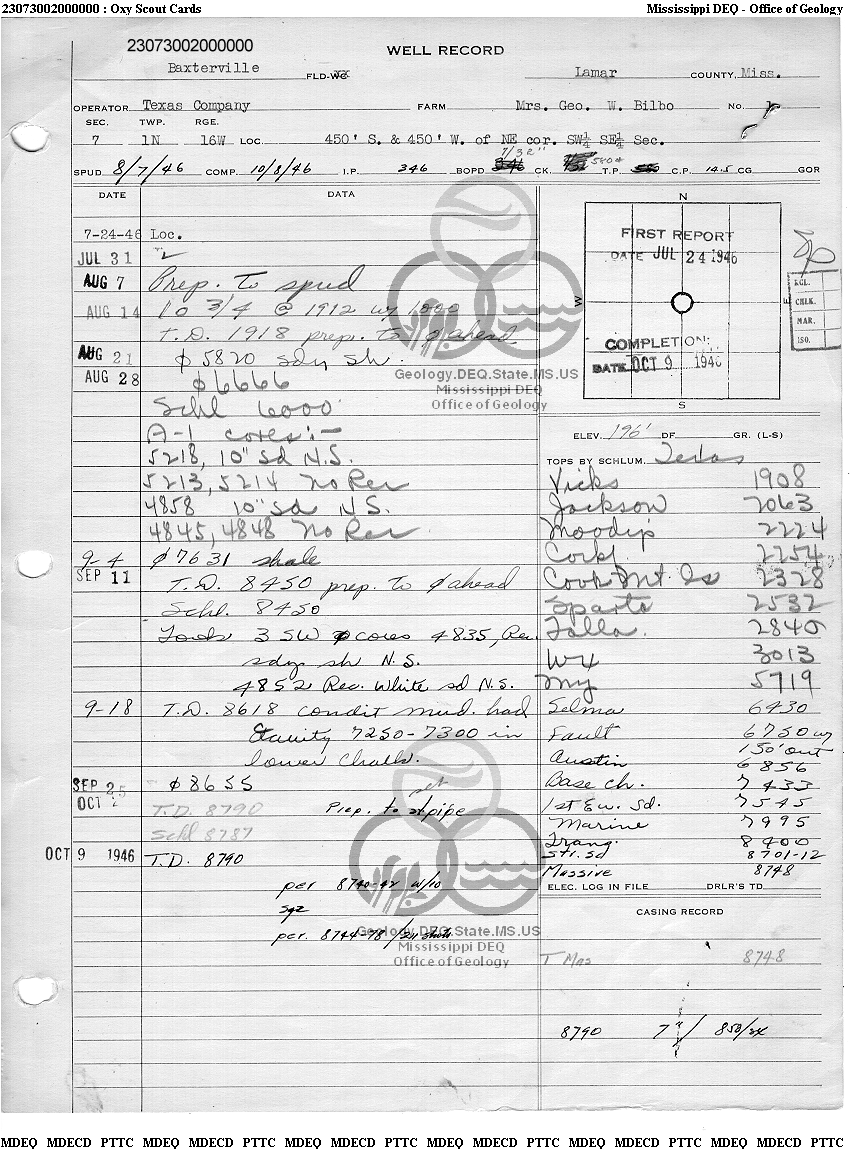 23073002000000 : Oxy Scout Cards Mississippi DEQ - Office of Geology
23073002000000
WELL RECORD
Baxterville FLD-WC Lamar COUNTY, Miss.
OPERATOR Texas Company FARM Mrs. Geo. W. Bilbo NO.
SEC. TWP. RGE.
7 1N 16W LOC. 450' S. & 450' W. of NE cor. SW¼ SE¼ Sec.
SPUD 8/7/46 COMP. 10/8/46 I.P. 346 BOPD CK. T.P. C.P. 145 CG. GOR
DATE DATA
7-24-46 Loc.
JUL 31 "
AUG 7 Prep. to spud
AUG 14 10 3/4 @ 1912 w/ 1000
T.D. 1918 prep. to ϕ ahead
AUG 21 ϕ 5820 sdy sh.
AUG 28 ϕ 6666
Schl 6000
A-1 cores:-
5218, 10" sd N.S.
5213, 5214 No Rec
4858 10" sd N.S.
4845, 4848 No Rec
9-4 ϕ 7631 shale
SEP 11 T.D. 8450 prep. to ϕ ahead
Schl. 8450
3 SW cores 4835, Rec.
sdy sh N.S.
4852 Rec. White sd N.S.
9-18 T.D. 8618 condit mud. had
Cavity 7250-7300 in
lower Chalk.
SEP 25 - ϕ 8655
OCT 2 T.D. 8790 Prep. to set pipe
Schl 8787
OCT 9 1946 T.D. 8790
per 8740-42 w/10
sqz
per. 8744-78 / shots
N
W E
S
FIRST REPORT
DATE JUL 24 1946
COMPLETION:
DATE OCT 9 1946
RGL.
CHLK.
MAR.
ISO.
ELEV. 196' DF GR. (L-S)
TOPS BY SCHLUM. Texas
Vicks 1908
Jackson 2063
Moodys 2224
Cockf. 2254
Cook Mt. Ls 2328
Sparta 2532
Talla. 2840
WX 3013
My 5719
Selma 6430
Fault 6750 w/
150' out
Austin 6856
Base ch. 7433
1st Eu. Sd. 7545
Marine 7995
Trans. 8400
Str. Sd 8701-12
Massive 8748
ELEC. LOG IN FILE DRLR'S TD
CASING RECORD
T Mas 8748
8790 7" / 850/sx
Geology.DEQ.State.MS.US
Mississippi DEQ
Office of Geology
Geology.DEQ.State.MS.US
Mississippi DEQ
Office of Geology
MDEQ MDECD PTTC MDEQ MDECD PTTC MDEQ MDECD PTTC MDEQ MDECD PTTC MDEQ MDECD PTTC MDEQ MDECD PTTC